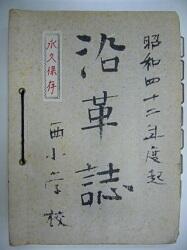 昭和四十二年度起
沿革誌
永久保存
西小学校